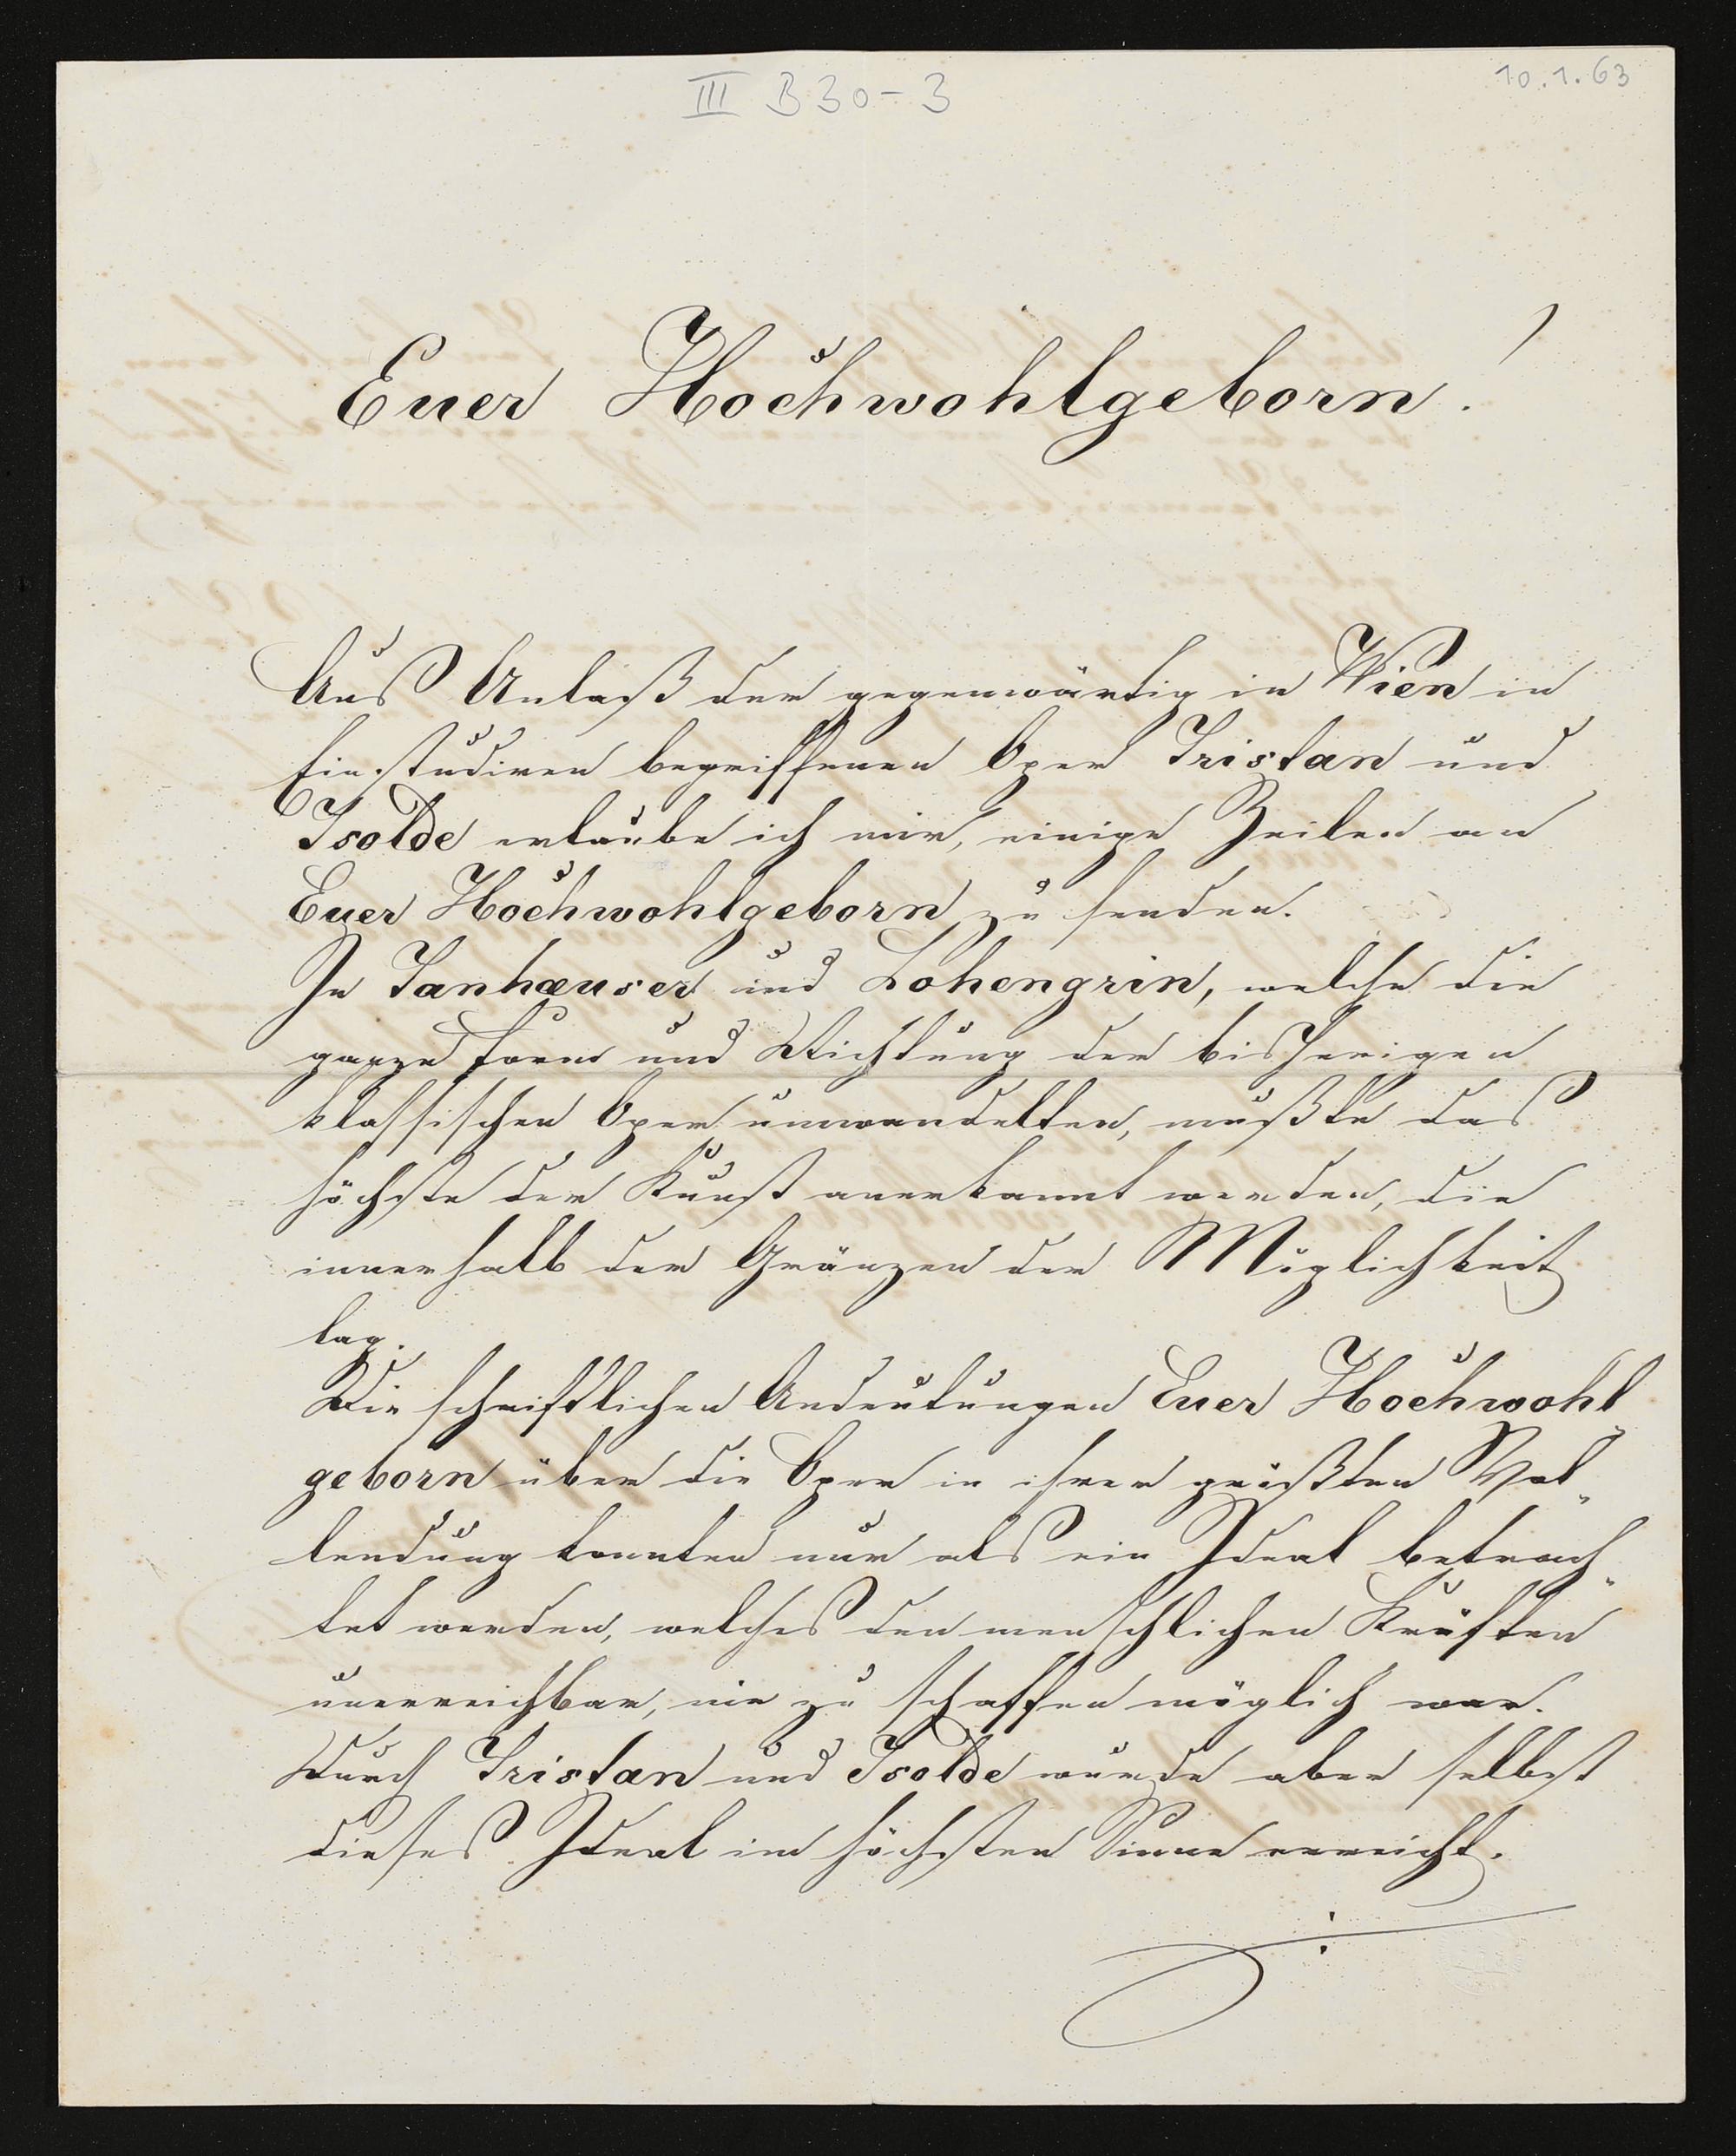 III B 30-3
10.1.63
Euer Hochwohlgeborn!
Aus Anlaß der gegenwärtig in Wien in
Einstudiren begriffenen Oper Tristan und
Isolde erlaube ich mir, einige Zeilen an
Euer Hochwohlgeborn zu senden.
In Tanhæuser und Lohengrin, welche die
ganze Form und Richtung der bisherigen
klassischen Oper umwandelten, mußte das
höchste der Kunst anerkannt werden, die
innerhalb der Gränzen der Möglichkeit
lag.
Die schriftlichen Andeutungen Euer Hochwohl„
geborn über die Oper in ihrer größten Vol„
lendung konnten nur als ein Ideal betrach„
tet werden, welches den menschlichen Kräften
unerreichbar, nie zu schaffen möglich war.
Durch Tristan und Isolde wurde aber selbst
dieses Ideal im höchsten Sinne erreicht.